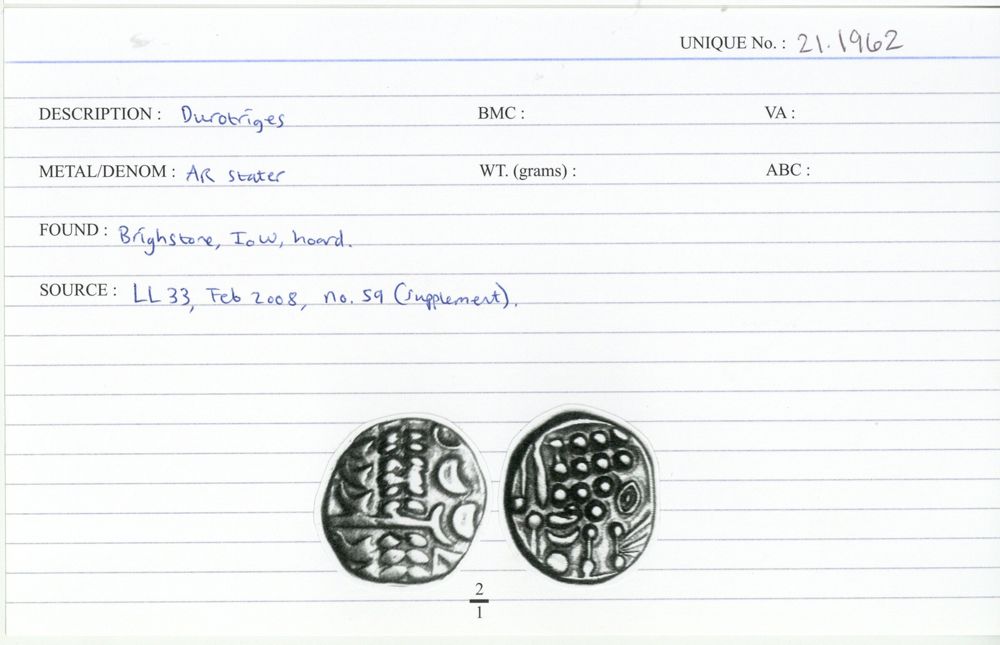 UNIQUE No. : 21.1962
DESCRIPTION : Durotriges BMC : VA :
METAL/DENOM : AR stater WT. (grams) : ABC :
FOUND : Brighstone, IoW, hoard.
SOURCE : LL 33, Feb 2008, no. 59 (supplement).
2
1